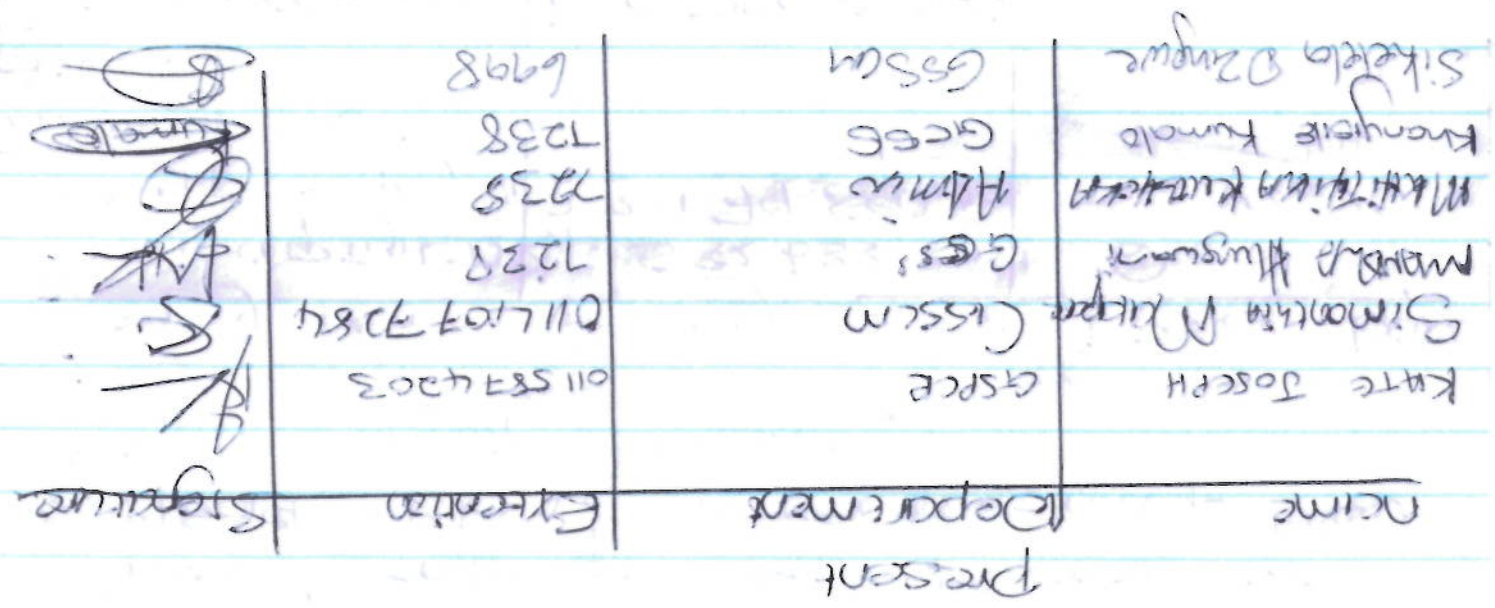 present
name Department Extention Signature
KATE JOSEPH GSPCR 011 587 4203
Simonthia GSSCM 011 407 7284
MANDLA Hlungwani GCSS 7238
Admin 7238
Khanyisile Kumalo GCSS 7238 Kumalo
Sikelela Dzingwe GSSCM 6998